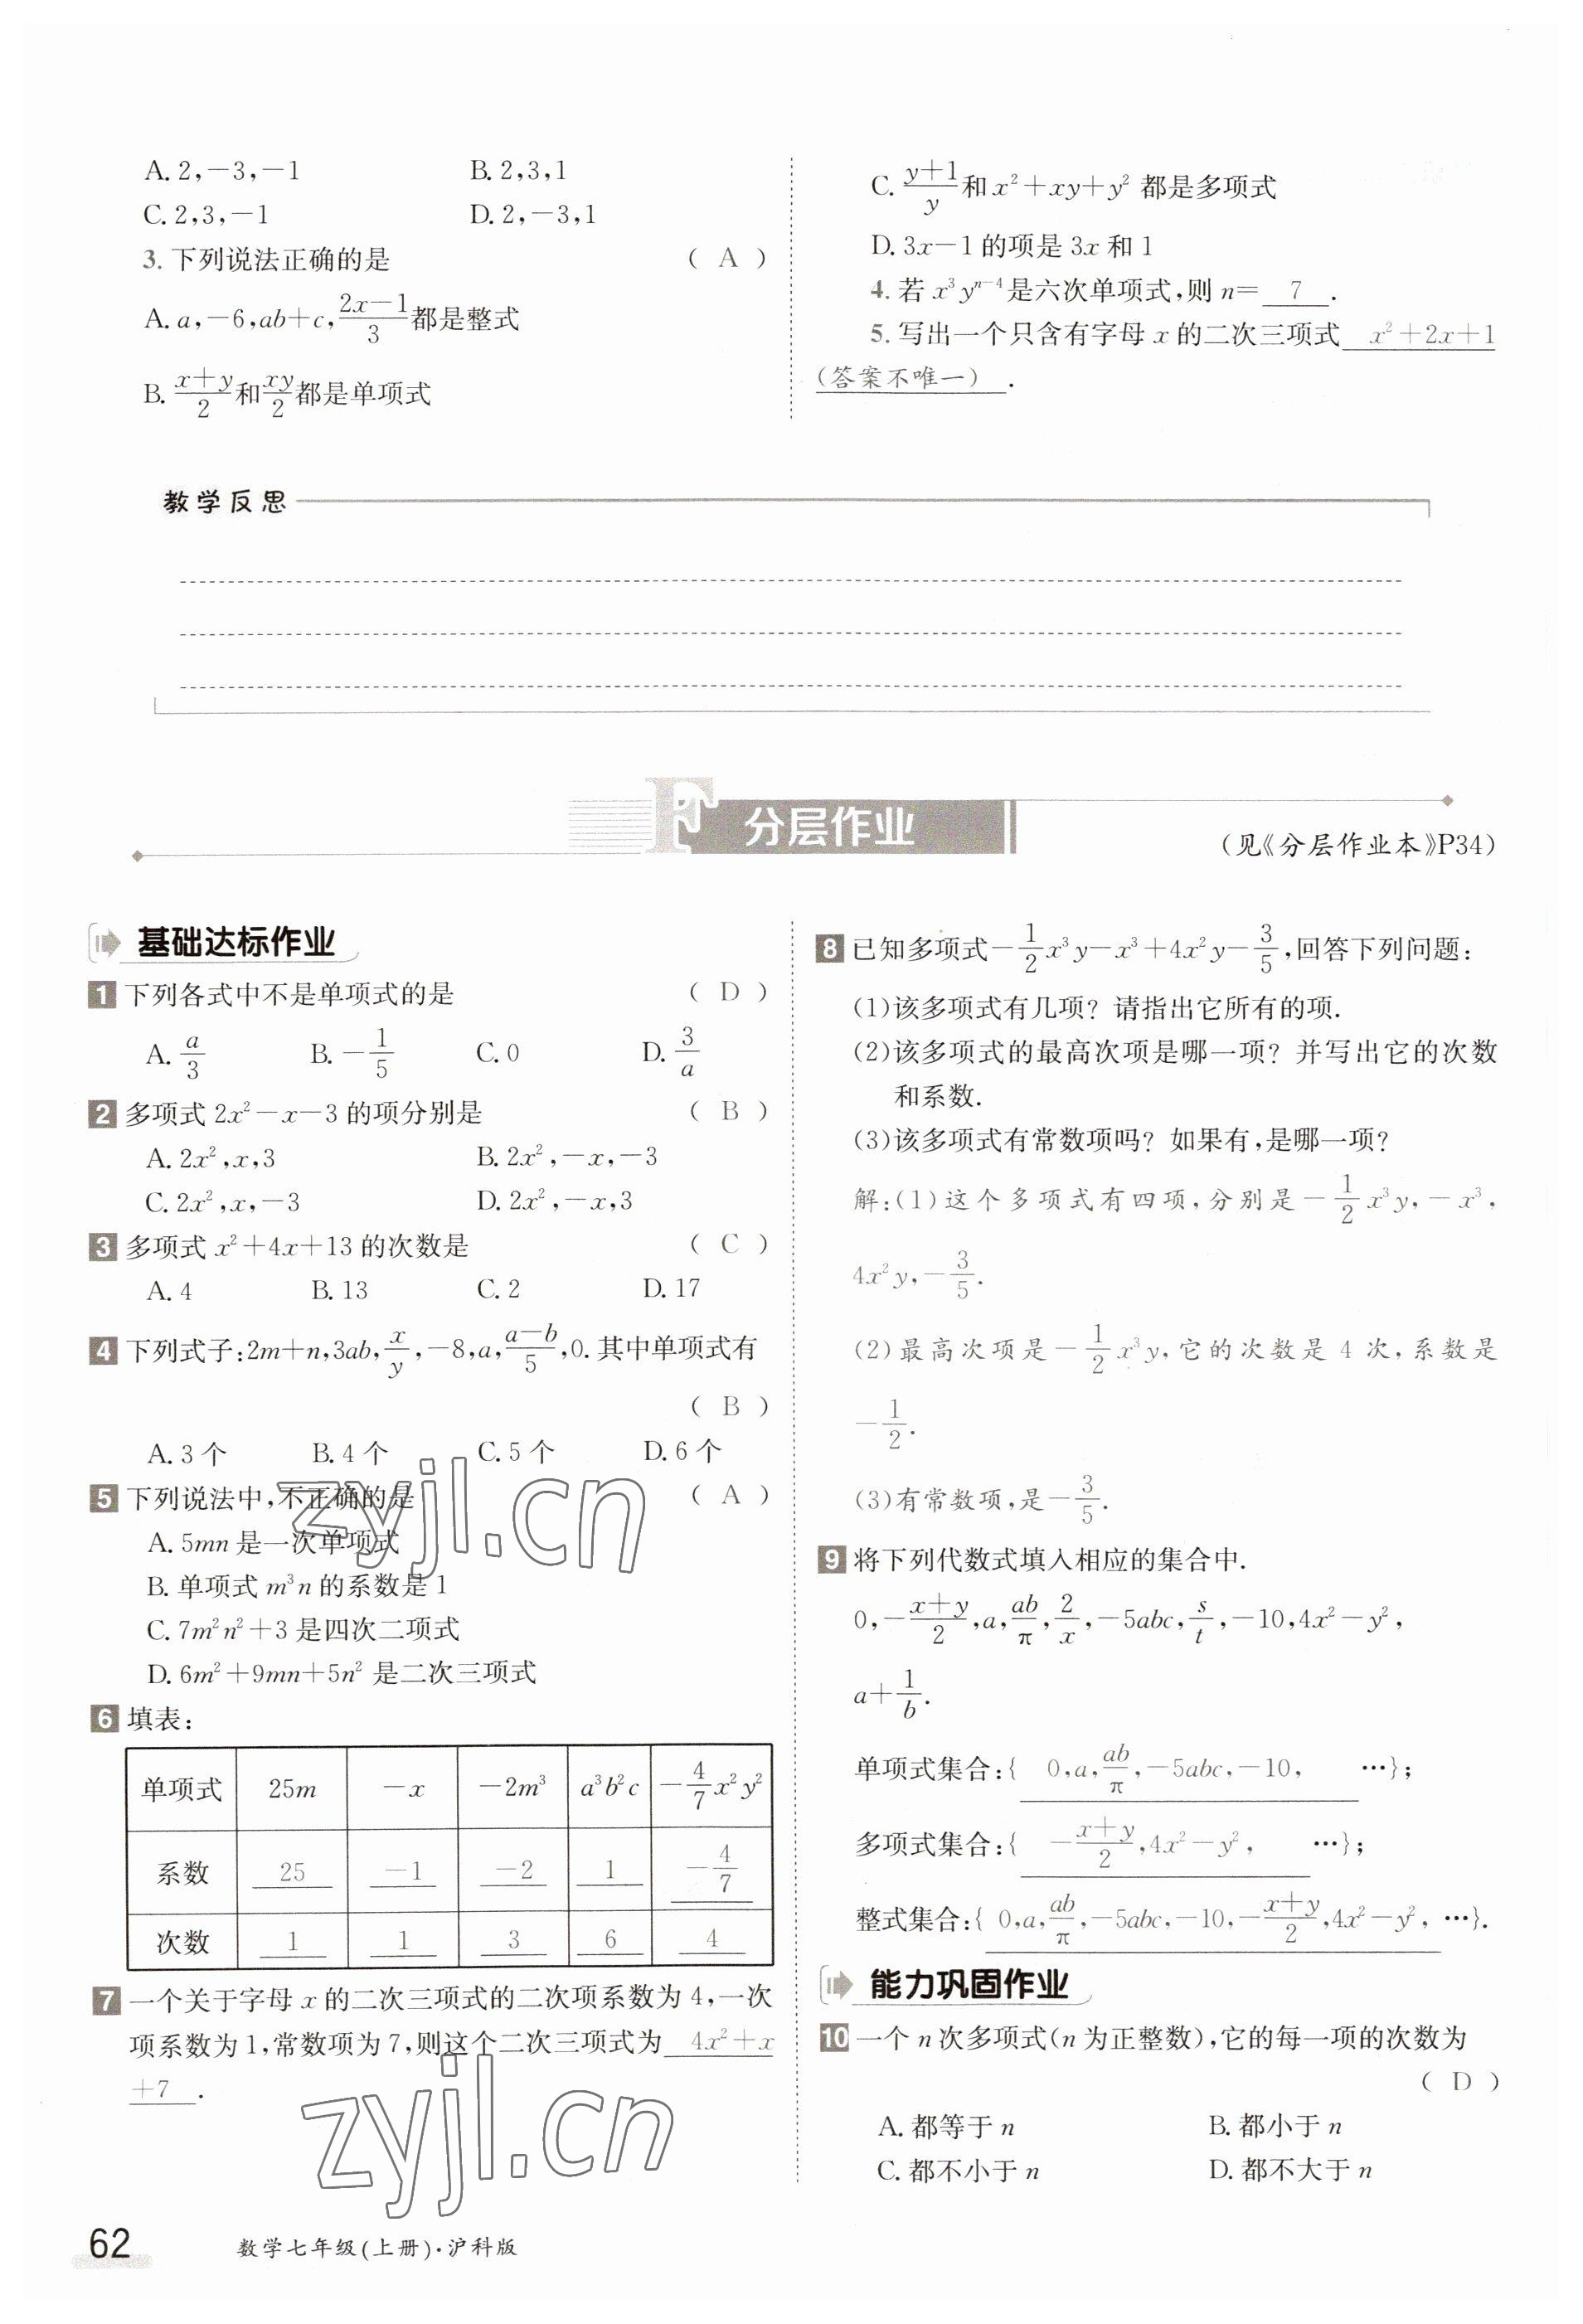 A. 2,－3,－1　B. 2,3,1
C. 2,3,－1　D. 2,－3,1
3. 下列说法正确的是（ A ）
A. a,－6,ab＋c,(2x－1)/3都是整式
B. (x＋y)/2和xy/2都是单项式
C. (y＋1)/y和x²＋xy＋y² 都是多项式
D. 3x－1 的项是 3x 和 1
4. 若 x³yⁿ⁻⁴是六次单项式,则 n＝ 7 .
5. 写出一个只含有字母 x 的二次三项式 x²＋2x＋1
(答案不唯一) .
教学反思
F 分层作业
(见《分层作业本》P34)
基础达标作业
1 下列各式中不是单项式的是（ D ）
A. a/3　B. －1/5　C. 0　D. 3/a
2 多项式 2x²－x－3 的项分别是（ B ）
A. 2x²,x,3　B. 2x²,－x,－3
C. 2x²,x,－3　D. 2x²,－x,3
3 多项式 x²＋4x＋13 的次数是（ C ）
A. 4　B. 13　C. 2　D. 17
4 下列式子:2m＋n,3ab,x/y,－8,a,(a－b)/5,0. 其中单项式有
（ B ）
A. 3 个　B. 4 个　C. 5 个　D. 6 个
5 下列说法中,不正确的是（ A ）
A. 5mn 是一次单项式
B. 单项式 m³n 的系数是 1
C. 7m²n²＋3 是四次二项式
D. 6m²＋9mn＋5n² 是二次三项式
6 填表:
单项式　25m　－x　－2m³　a³b²c　－4/7x²y²
系数　25　－1　－2　1　－4/7
次数　1　1　3　6　4
7 一个关于字母 x 的二次三项式的二次项系数为 4,一次
项系数为 1,常数项为 7,则这个二次三项式为 4x²＋x
＋7 .
8 已知多项式－1/2x³y－x³＋4x²y－3/5,回答下列问题:
(1)该多项式有几项? 请指出它所有的项.
(2)该多项式的最高次项是哪一项? 并写出它的次数
和系数.
(3)该多项式有常数项吗? 如果有,是哪一项?
解:(1)这个多项式有四项,分别是－1/2x³y,－x³,
4x²y,－3/5.
(2)最高次项是－1/2x³y,它的次数是 4 次,系数是
－1/2.
(3)有常数项,是－3/5.
9 将下列代数式填入相应的集合中.
0,－(x＋y)/2,a,ab/π,2/x,－5abc,s/t,－10,4x²－y²,
a＋1/b.
单项式集合:{ 0,a,ab/π,－5abc,－10, …};
多项式集合:{ －(x＋y)/2,4x²－y², …};
整式集合:{ 0,a,ab/π,－5abc,－10,－(x＋y)/2,4x²－y², …}.
能力巩固作业
10 一个 n 次多项式(n 为正整数),它的每一项的次数为
（ D ）
A. 都等于 n　B. 都小于 n
C. 都不小于 n　D. 都不大于 n
zyjl.cn
zyjl.cn
62　数学七年级(上册)·沪科版